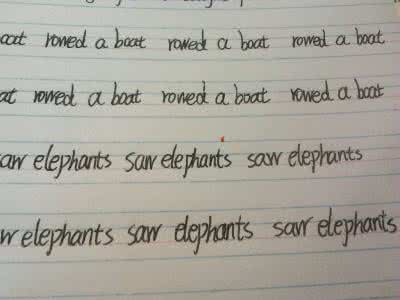 boat rowed a boat rowed a boat rowed a boat
at rowed a boat rowed a boat rowed a boat
saw elephants saw elephants saw elephants
w elephants saw elephants saw elephants